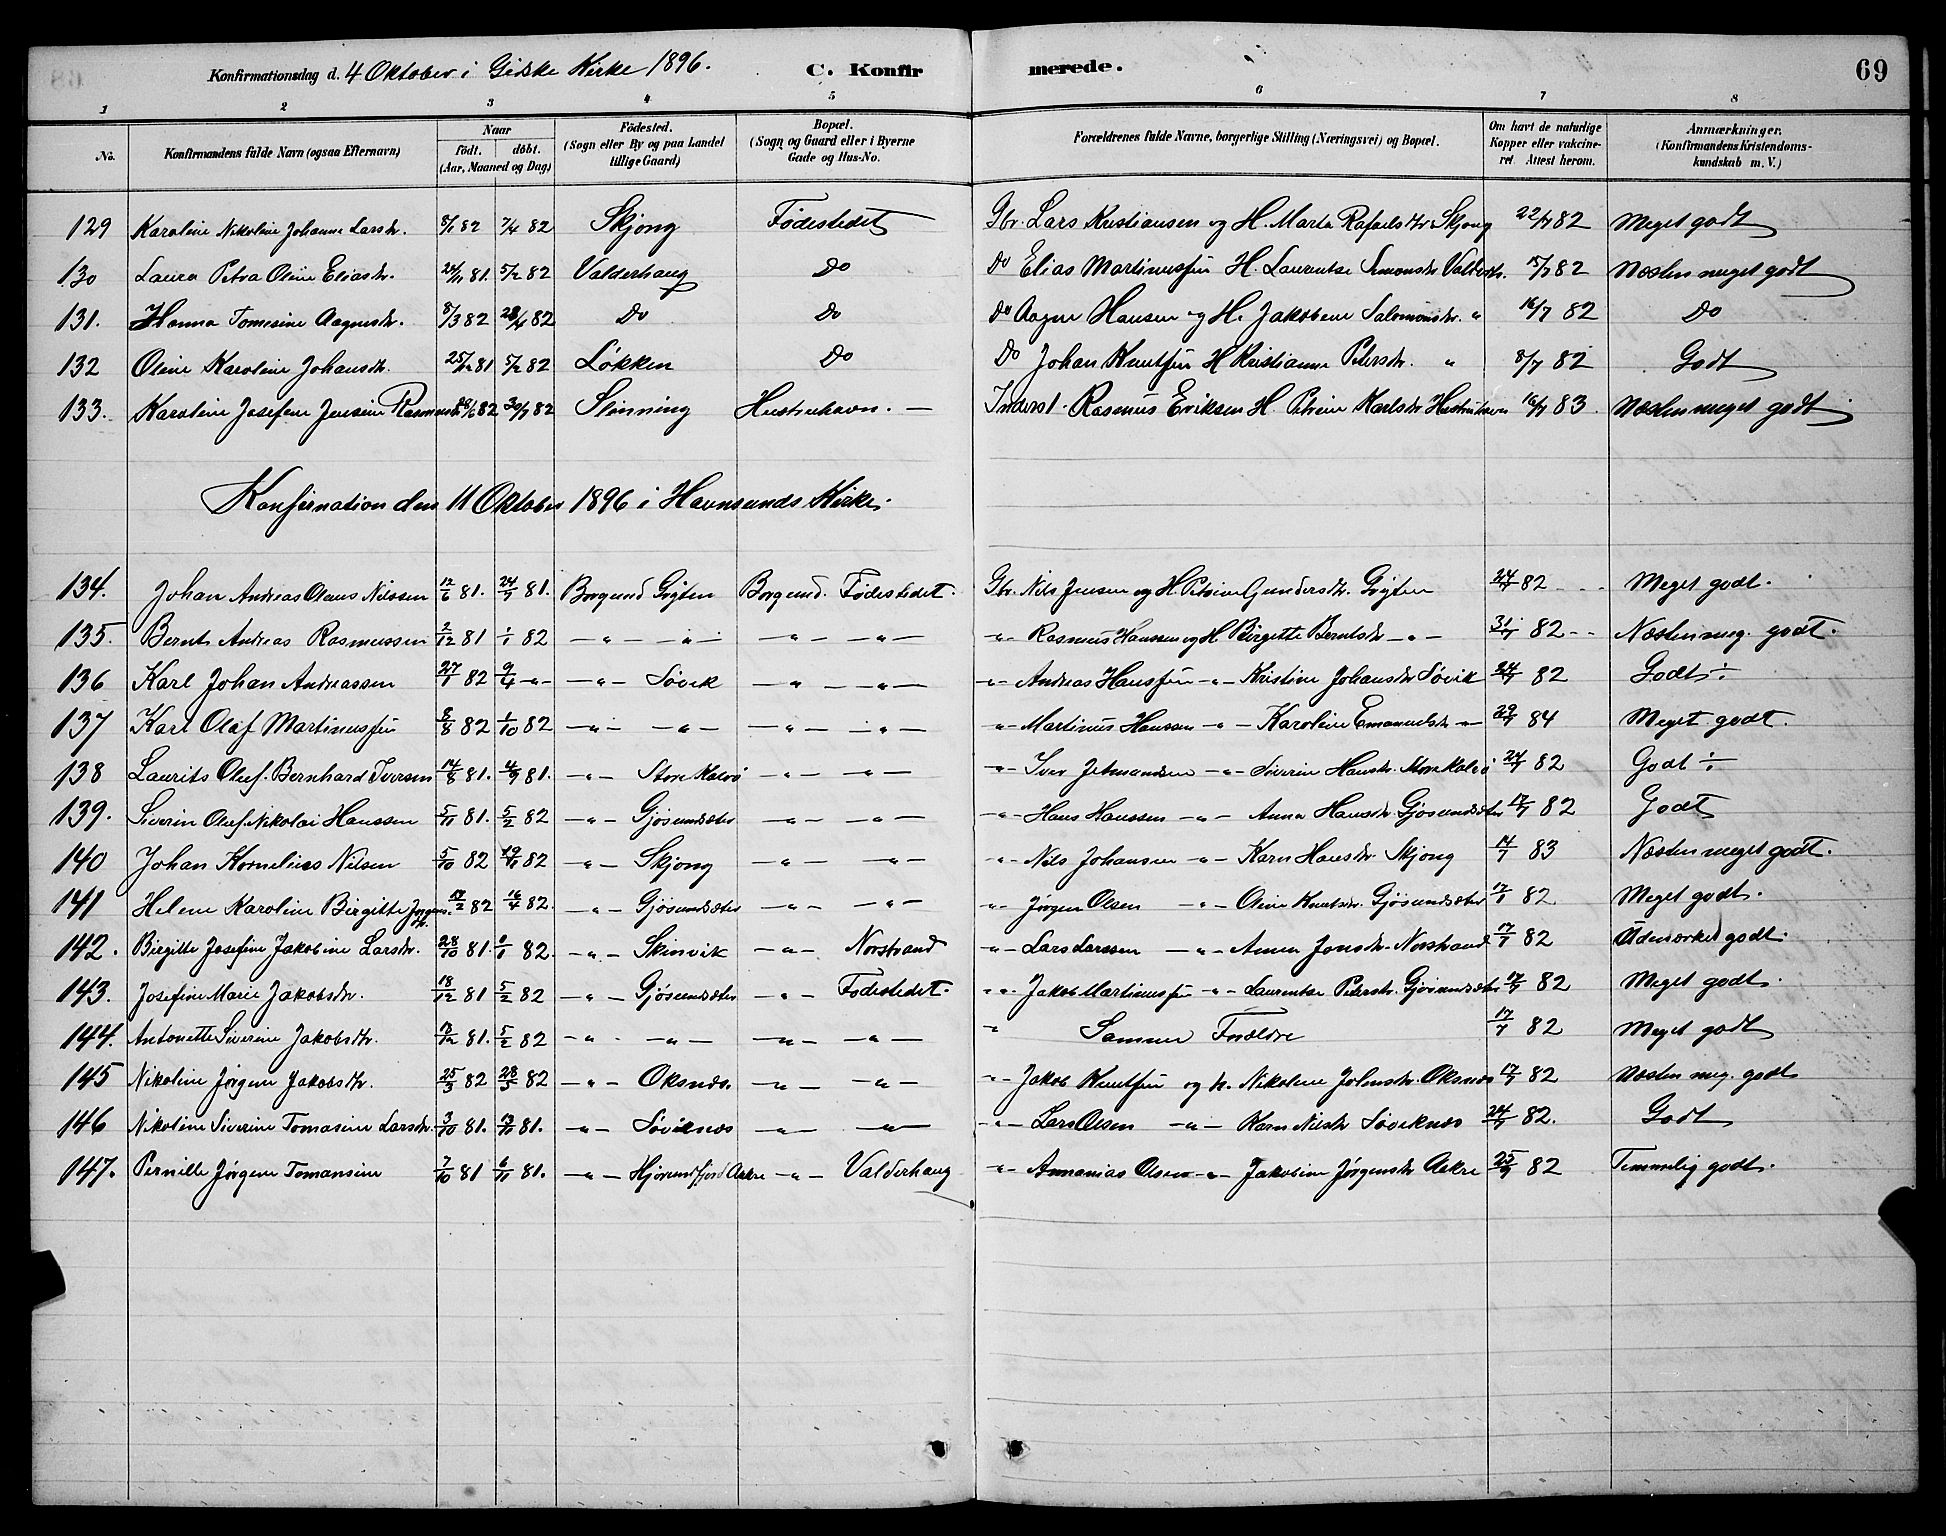 Konfirmationsdag d. 4 Oktober i Giske Kirke 1896. C. Konfirmerede. 69
1 2 3 4 5 6 7 8
No. Konfirmandens fulde Navn (ogsaa Efternavn) Naar født. døbt. (Aar, Maaned og Dag) Fødested. (Sogn eller By og paa Landet tillige Gaard) Bopæl. (Sogn og Gaard eller i Byerne Gade og Hus-No.) Forældrenes fulde Navne, borgerlige Stilling (Næringsvei) og Bopæl. Om havt de naturlige Kopper eller vakcineret. Attest herom. Anmærkninger. (Konfirmandens Kristendomskundskab m. V.)
129 Karoline Nikoline Johanne Larsdr. 8/1 82 7/4 82 Skjong Fødestedet Gbr. Lars Kristiansen og H. Marta Rafaelsdtr Skjong 22/7 82 Meget godt
130 Laura Petra Oline Eliasdr. 5/2 82 Valderhaug Do Do Elias Martinussen H. Laurentse Simonsdr 82 Næsten meget godt
131. Hanna Tomesine Aagesdr. 8/3 82 28/4 82 Do Do Do Aage Hansen og H. Jakobine Salomonsdr. " 16/7 82 Do
132 Oline Karoline Johansdr. 25/12 81 5/2 82 Løkken Do Do Johan Knutsen H Kristianne Petersdr. " 8/7 82 Godt
133. Karoline Josefine Jensine Rasmusdr 82 30/7 82 Slinning Hestnehavn. — Inderst. Rasmus Eriksen H. Petrine Karlsdr 83. Næsten meget godt
Konfirmation den 11 Oktober 1896 i Havnsunds Kirke.
134. Johan Andreas Olaus Nilssen 12/6 81. 24/7 81. Borgund Gryten Borgund. Fødestedet. Gbr. Nils Jensen og H. Petrine Gundersdr. Gryten 24/7 82 Meget godt.
135. Bernt Andreas Rasmussen 2/12 81 1/1 82 —"— —"— —"— —"— "- Rasmus Hanssen og H Birgitte Berntsdr -"- 31/7 82 Næsten meg. godt.
136 Karl Johan Andreassen 27/1 82 9/4 -"- —"— Søvik —"— —"— "- Andreas Hanssen -"- Kristine Johansdr Søvik 24/7 82 Godt ÷
137 Karl Olaf Martinussen 8/8 82 1/10 82 —"— —"— —"— —"— "- Martinus Hanssen -"- Karoline Emanuelsdr -"- 29/7 84 Meget godt.
138 Laurits Oluf Bernhard Iversen 14/8 81. 4/9 81. —"— Store Kalvø —"— —"— "- Iver Jetmundsen -"- Severin Hansdr. Store Kalvø 24/7 82 Godt ÷
139. Severin Oluf Nikolai Hanssen 5/11 81. 5/2 82 —"— Gjøsundsæter —"— —"— "- Hans Hanssen —"— Anna Hansdr Gjøsundsæter 17/7 82 Godt
140 Johan Kornelius Nilsen 5/10 82 82 —"— Skjong —"— —"— "- Nils Johansen —"— Karn Hansdr Skjong 14/7 83 Næsten meget godt.
141 Helene Karoline Birgitte Jørgensdr. 17/2 82 16/4 82. —"— Gjøsundsæter —"— —"— "- Jørgen Olsen —"— Oline Knutsdr. Gjøsundsæter 17/7 82 Meget godt.
142. Birgitte Josefine Jakobine Larsdr. 28/10 81. 1/1 82. —"— Skinvik —"— Norstrand "- Lars Larssen —"— Anna Jonsdr. Norstrand 17/7 82 Udmærket godt.
143. Josefine Marie Jakobsdr. 18/12 81 5/2 82 —"— Gjøsundsæter —"— Fødestedet. "- Jakob Martinussen -"- Laurentse Petersdr. Gjøsundsæter 17/7 82 Meget godt.
144. Antonette Siverine Jakobsdr. 81. 5/2 82 —"— —"— —"— —"— " Samme Forældre 17/7 82 Meget godt
145 Nikoline Jørgine Jakobsdr. 25/3 82 28/5 82 —"— Oksnæs —"— —"— "- Jakob Knutsen og h. Nikoline Johnsdr. Oksnæs 17/7 82 Næsten meg. godt
146 Nikoline Siverine Tomasine Larsdr. 3/10 81. 13/11 81. —"— Søviknæs —"— —"— —"— Lars Olsen —"— Karn Nilsdr Søviknæs 24/7 82. Godt
147. Pernille Jørgine Tomansine 7/10 81 6/11 81. —"— Hjørundfjord Aakre —"— Valderhaug "- Annanias Olsen -"- Jakobine Jørgensdr Aakre 25/9 82 Temmelig godt.